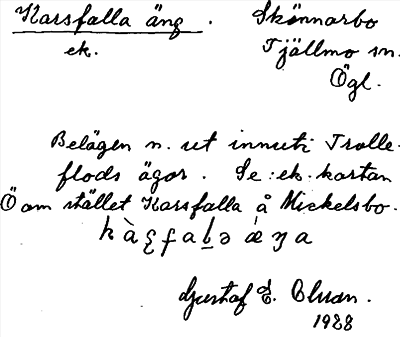 Karsfalla äng . Skönnarbo
ek. Tjällmo sn.
Ögl.
Belägen n. ut innuti Trolle-
flods ägor. Se: ek. kartan
Ö om stället Karsfalla å Mickelsbo.
Gustaf E.
1928